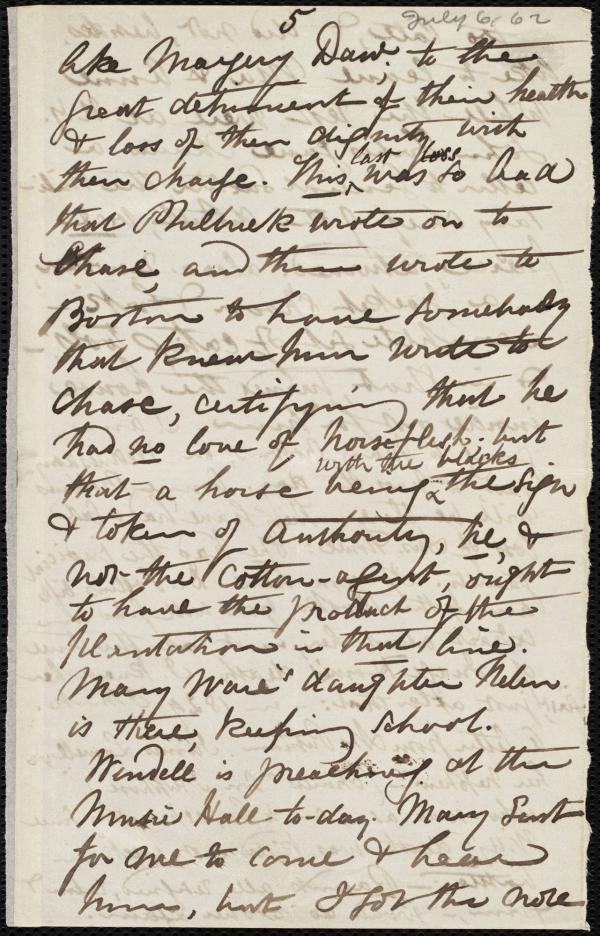 5
July 6, 62
like Margery Daw, to the
great detriment of their health
& loss of their dignity with
their charge. This last loss was so bad
that Philbrick wrote on to
Chase, and then wrote to
Boston to have somebody
that knew him write to
Chase, certifying that he
had no love of horseflesh. but
that a horse being with the blacks the sign
& token of Authority, he, &
not the Cotton-agent, ought
to have the product of the
plantation in that line.
Mary Ware's daughter Helen
is there, keeping school.
Wendell is preaching at the
Music Hall to-day. Mary Sent
for me to come & hear
him, but I got the note